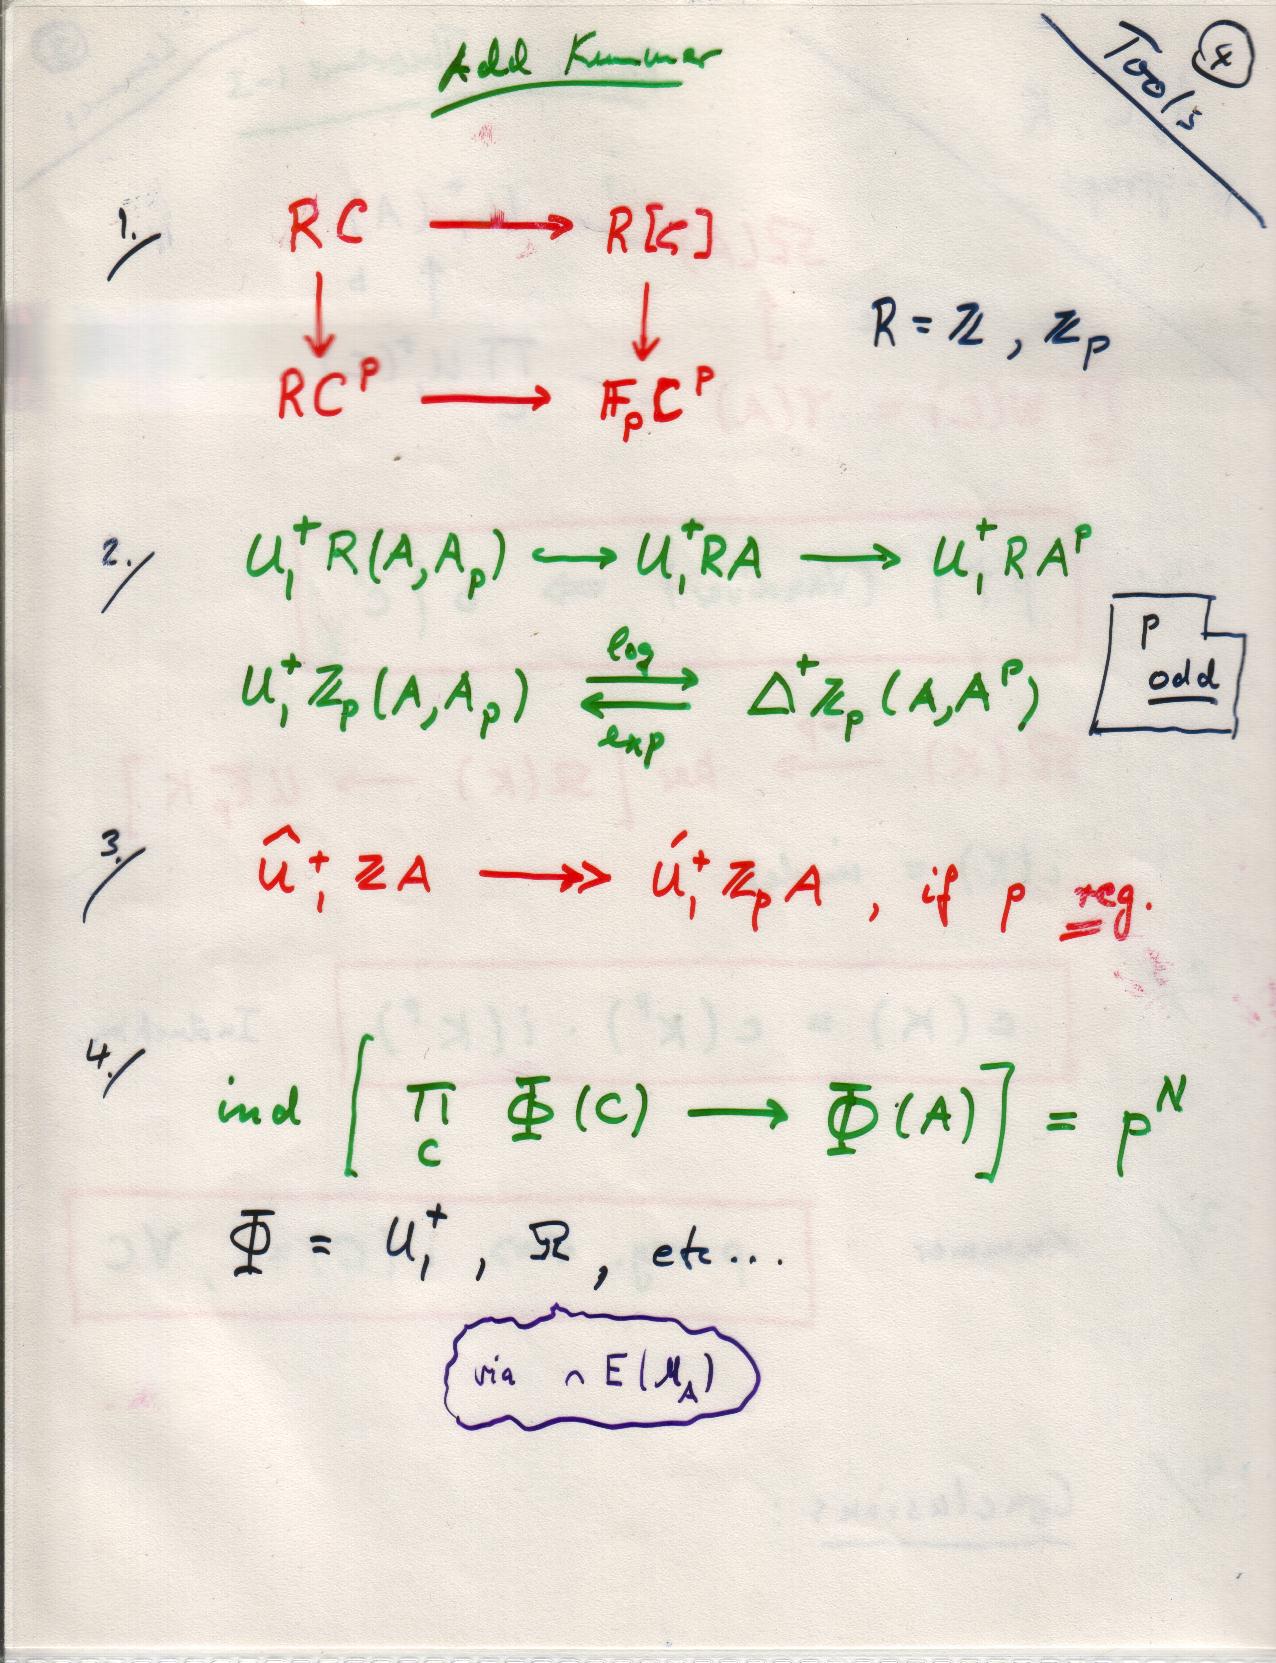 Add Kummer
Tools
1.
RC → R[ζ]
↓ ↓
RC^p → 𝔽_p C^p
R = ℤ, ℤ_p
2.
U_1^+ R(A, A_p) ↪ U_1^+ RA → U_1^+ RA^p
U_1^+ ℤ_p(A, A_p) ⇄ Δ^+ ℤ_p(A, A^p)
log
exp
p
odd
3.
Û_1^+ ℤA ↠ Ú_1^+ ℤ_p A, if p reg.
4.
ind [ Π_C Φ(C) → Φ(A) ] = p^N
Φ = U_1^+, Ω, etc...
via ∩ E(M_A)